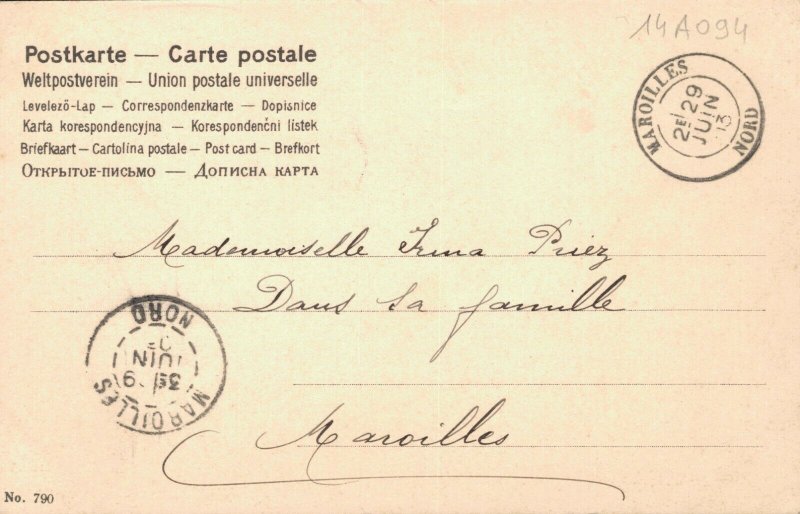 14A094
Postkarte — Carte postale
Weltpostverein — Union postale universelle
Levelező-Lap — Correspondenzkarte — Dopisnice
Karta korespondencyjna — Korespondenční listek
Briefkaart — Cartolina postale — Post card — Brefkort
Открытое-письмо — Дописна карта
MAROILLES
2E 29
JUIN
NORD
Mademoiselle Irma Priez
Dans sa famille
Maroilles
NORD
JUIN
3E
MAROILLES
No. 790